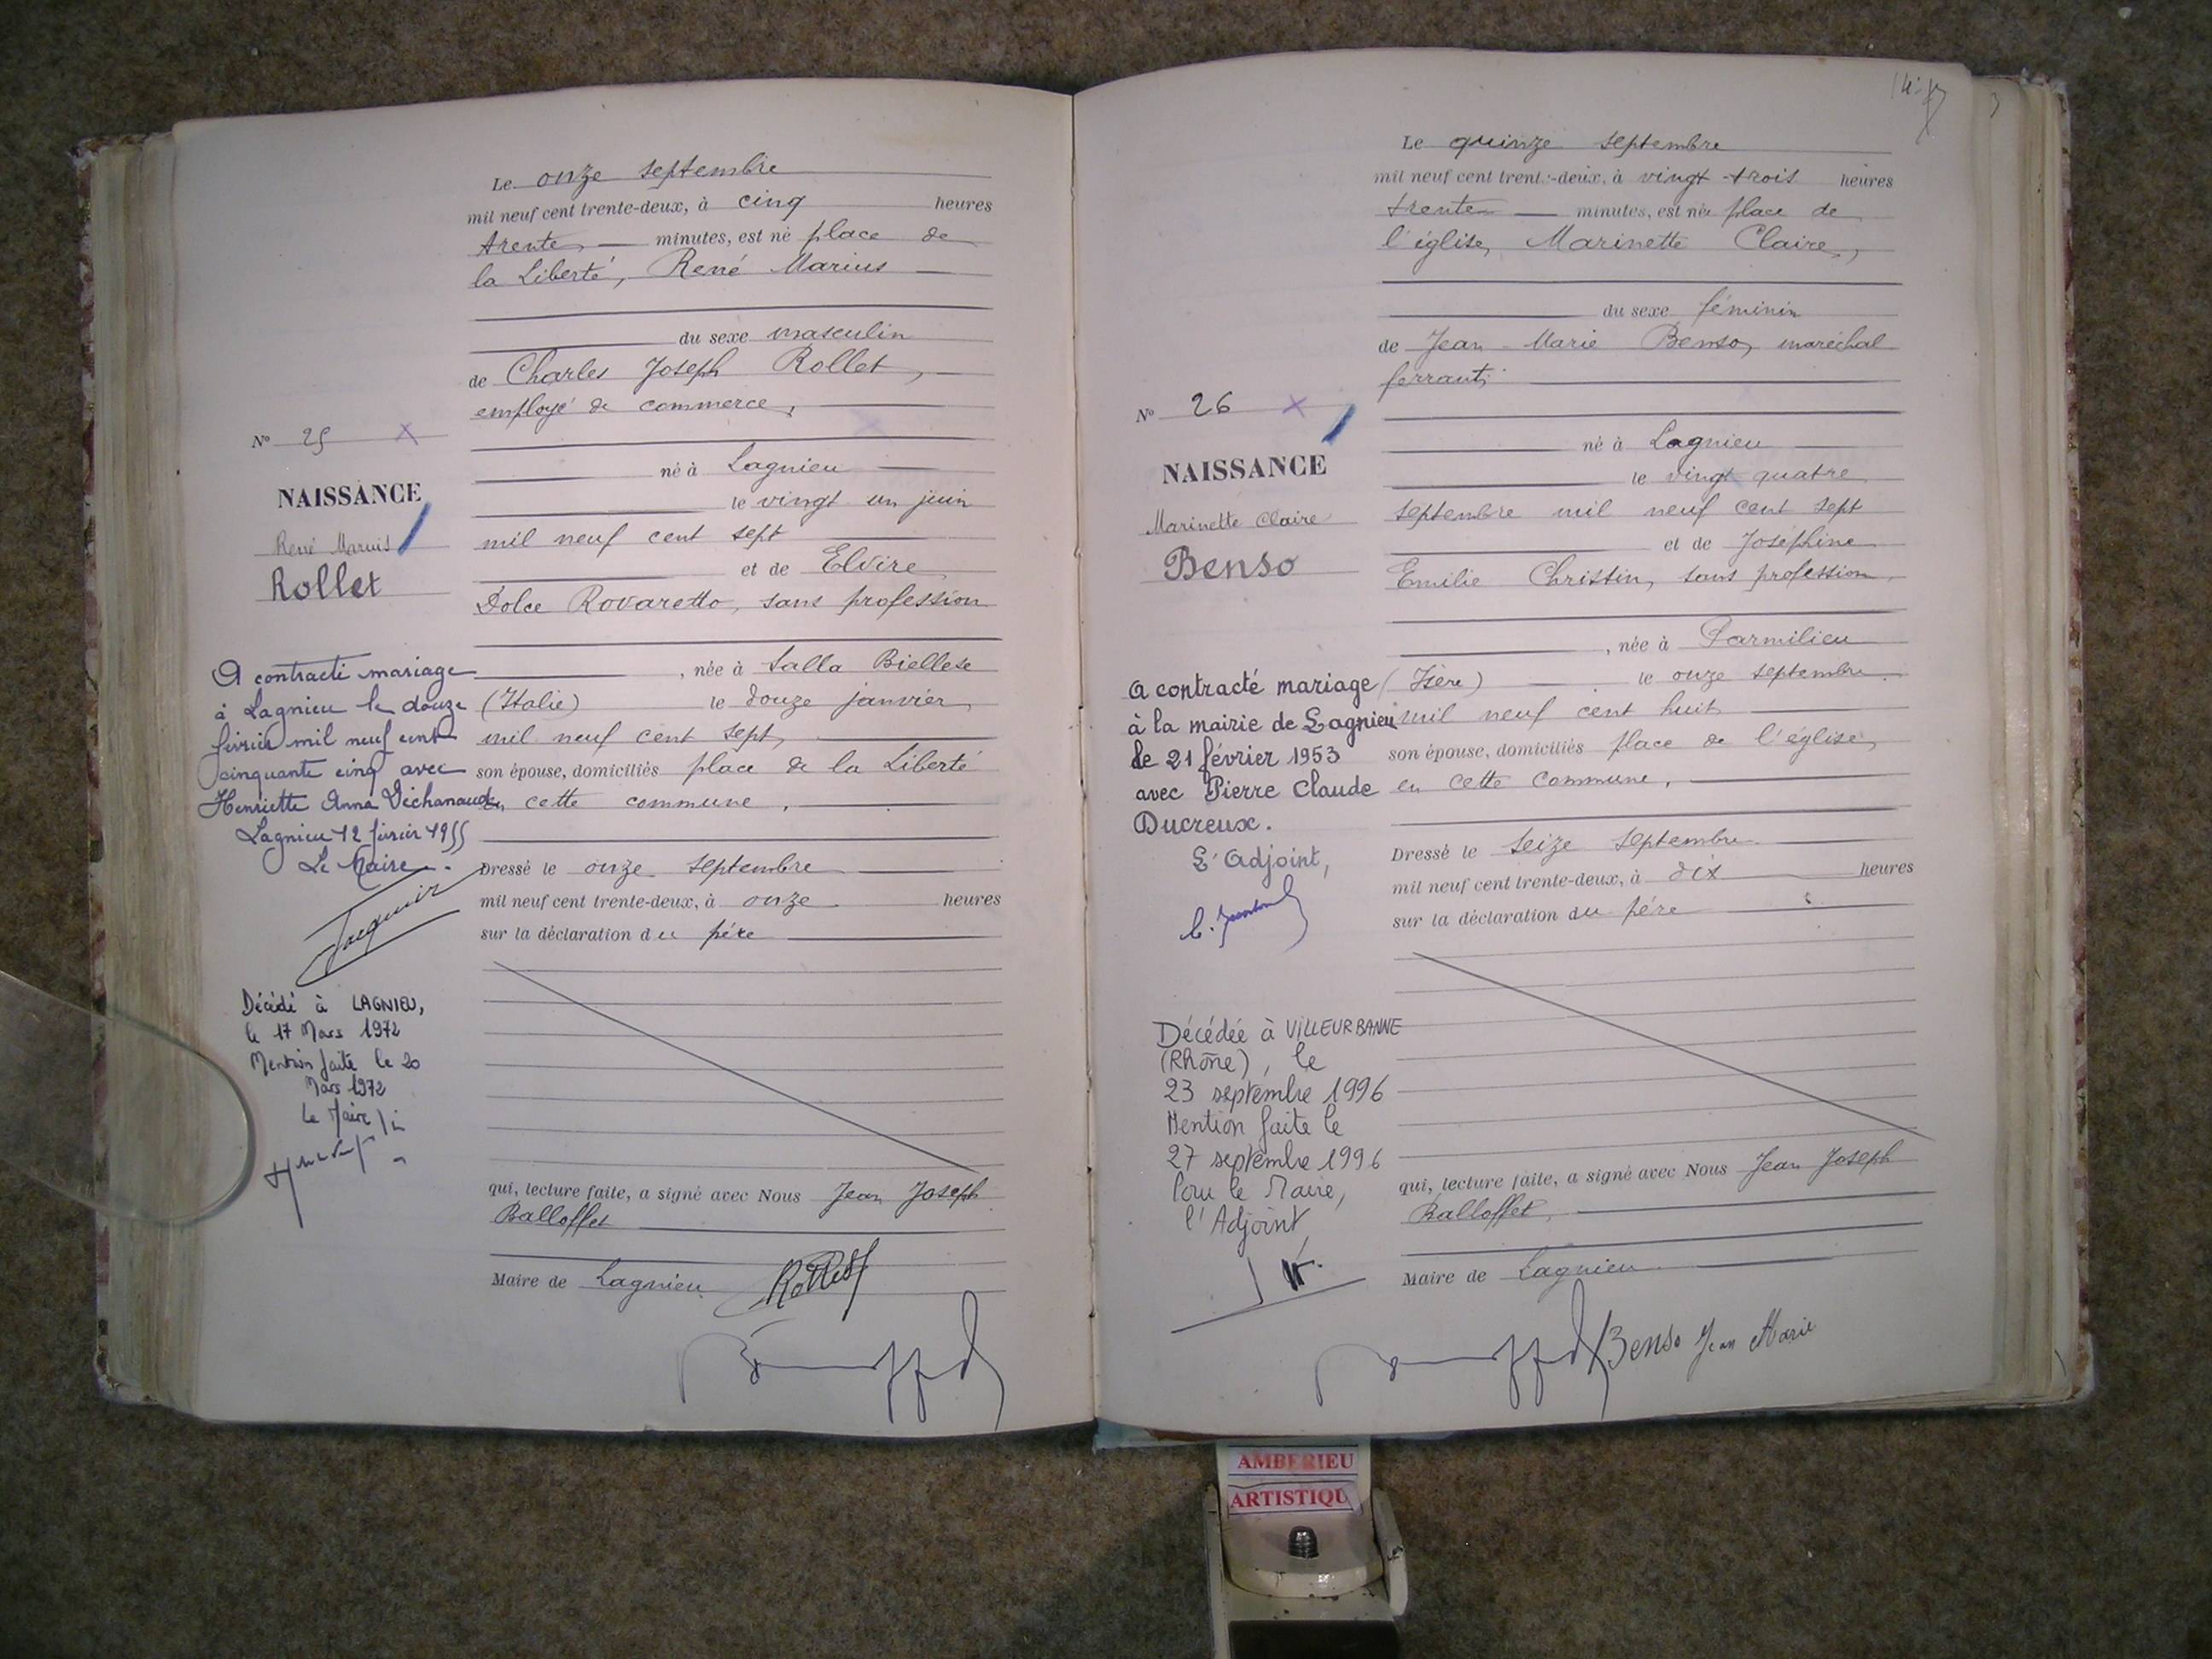 Le onze septembre
mil neuf cent trente-deux, à cinq heures
trente minutes, est né place de
la Liberté, René Marius
du sexe masculin
de Charles Joseph Rollet,
employé de commerce,
né à Lagnieu
le vingt un juin
mil neuf cent sept
et de Elvire
Dolce Rovaretto, sans profession
, née à Salla Biellese
(Italie) le douze janvier
mil neuf cent sept,
son épouse, domiciliés place de la Liberté
en cette commune,
Dressé le onze septembre
mil neuf cent trente-deux, à onze heures
sur la déclaration du père
qui, lecture faite, a signé avec Nous Jean Joseph
Balloffet
Maire de Lagnieu
Rollet
N° 25
NAISSANCE
René Maruis
Rollet
A contracté mariage
à Lagnieu le douze
février mil neuf cent
cinquante cinq avec
Henriette Anna Déchanaud
Lagnieu 12 février 1955
Le Maire
Décédé à LAGNIEU,
le 17 Mars 1972
Mention faite le 20
Mars 1972
Le Maire
Le quinze septembre
mil neuf cent trente-deux, à vingt-trois heures
trente minutes, est née place de
l'église, Marinette Claire,
du sexe féminin
de Jean-Marie Benso, maréchal
ferrant,
né à Lagnieu
le vingt quatre
septembre mil neuf cent sept
et de Joséphine
Emilie Christin, sans profession,
, née à Parmilieu
(Isère) le onze septembre
mil neuf cent huit
son épouse, domiciliés place de l'église,
en cette commune,
Dressé le seize septembre
mil neuf cent trente-deux, à dix heures
sur la déclaration du père
qui, lecture faite, a signé avec Nous Jean Joseph
Balloffet,
Maire de Lagnieu
Benso Jean Marie
N° 26
NAISSANCE
Marinette Claire
Benso
A contracté mariage
à la mairie de Lagnieu
le 21 février 1953
avec Pierre Claude
Ducreux.
L'Adjoint,
Décédée à VILLEURBANNE
(Rhône), le
23 septembre 1996
Mention faite le
27 septembre 1996
Pour le Maire,
l'Adjoint,
AMBERIEU
ARTISTIQU